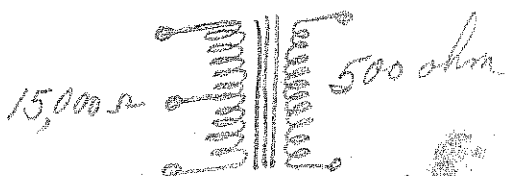 15,000 Ω
500 ohm